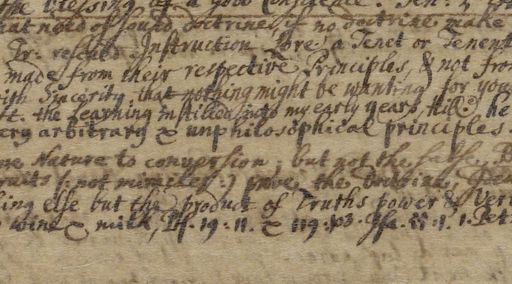 the blessing of a good Conscience
hat need of sound doctrine, if no doctrine make
Instruction. Ore, a Tenet or Tenent
made from their respective Principles, & not fro
ith Sincerity, that nothing might be wanting for you
the Learning instilled into my early years till he
ery arbitrary & unphilosophical principles.
me Nature to conversion, but not the false
not miracles :) prove the Doctrine
ing else but the product of Truths power & Veri
wine & milk, Ps. 19. 11. & 119. 103. Isa. 55. 1. 1. Pet